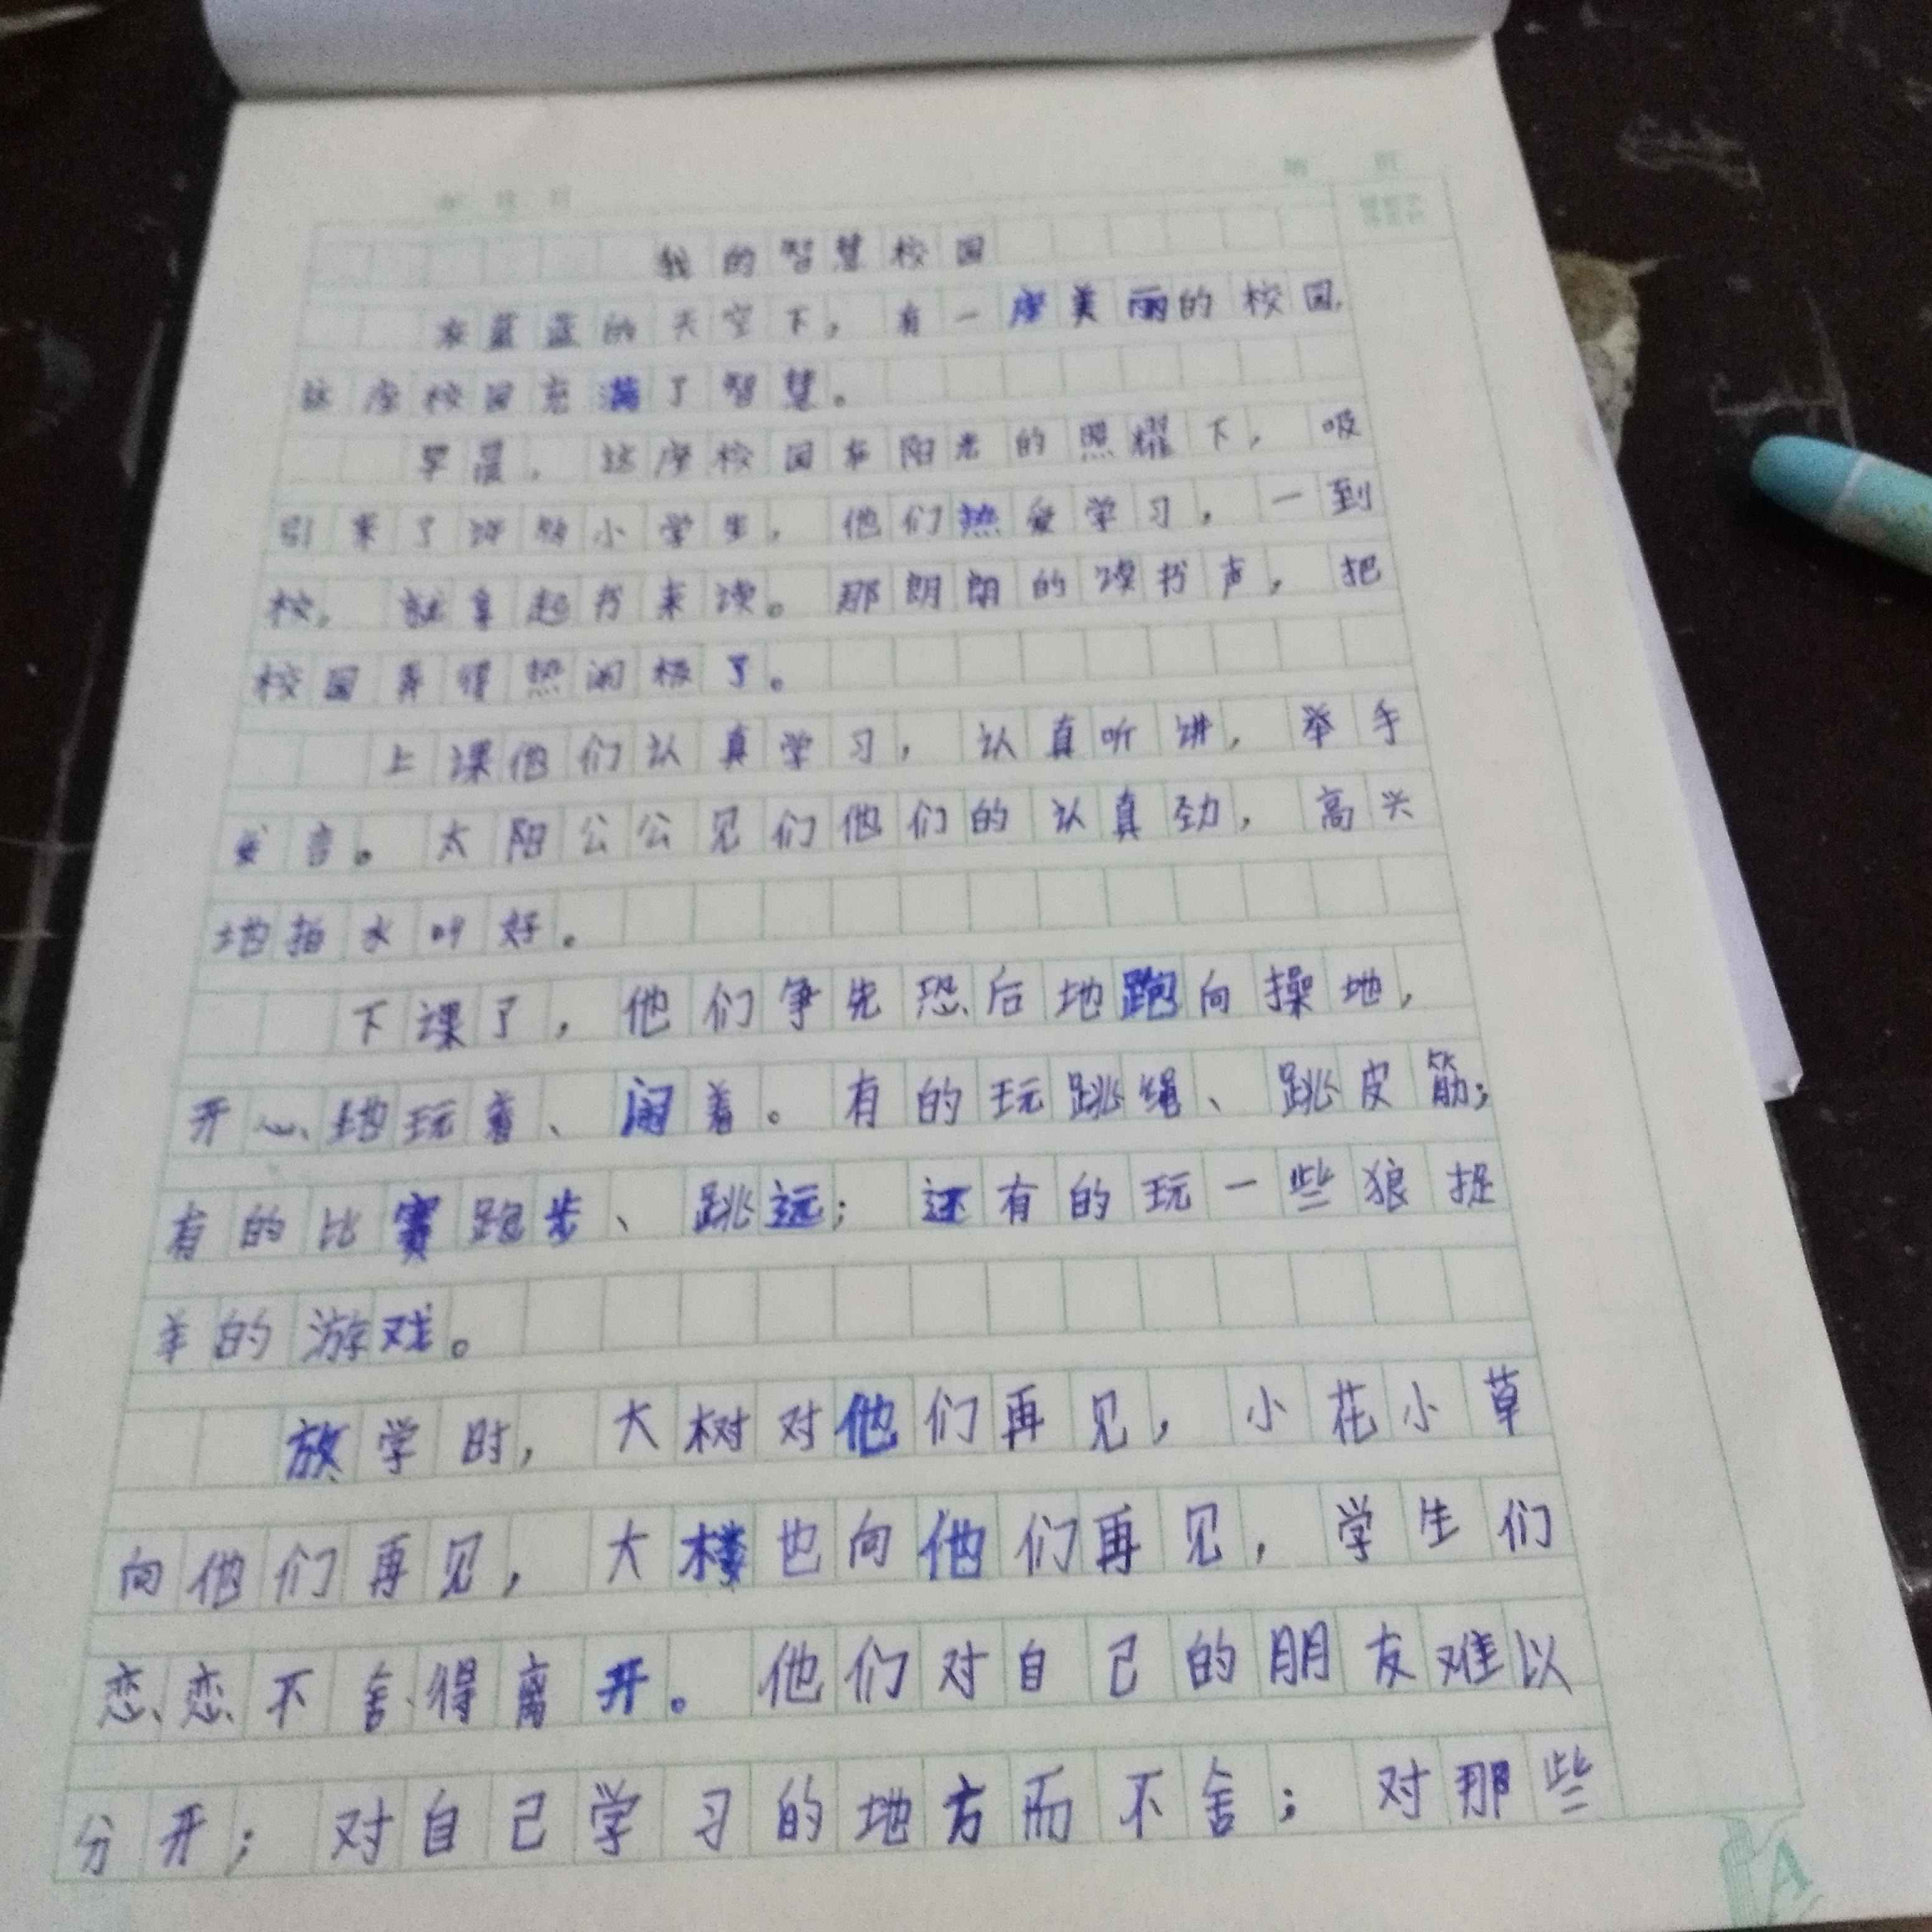 我的智慧校园
在蓝蓝的天空下，有一座美丽的校园，
这座校园充满了智慧。
早晨，这座校园在阳光的照耀下，吸
引来了许多小学生，他们热爱学习，一到
校，就拿起书来读。那朗朗的读书声，把
校园弄得热闹极了。
上课他们认真学习，认真听讲，举手
发言。太阳公公见们他们的认真劲，高兴
地拍水叫好。
下课了，他们争先恐后地跑向操地，
开心地玩着、闹着。有的玩跳绳、跳皮筋；
有的比赛跑步、跳远；还有的玩一些狼抓
羊的游戏。
放学时，大树对他们再见，小花小草
向他们再见，大楼也向他们再见，学生们
恋恋不舍得离开。他们对自己的朋友难以
分开；对自己学习的地方而不舍；对那些